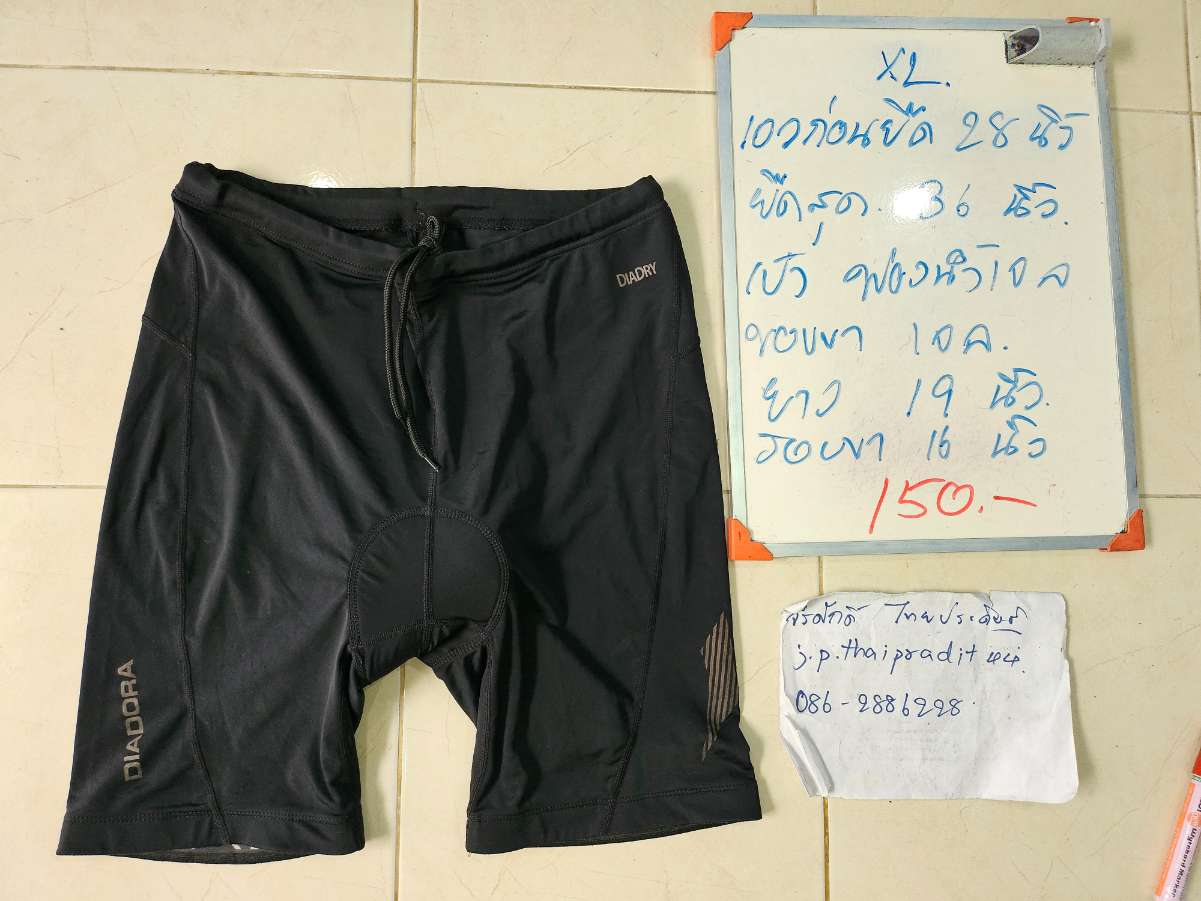 XL.
เอวก่อนยืด 28 นิ้ว
ยืดสุด 36 นิ้ว.
เป้า ฟองน้ำเจล
ขอบขา เจล.
ยาว 19 นิ้ว.
รอบขา 16 นิ้ว
150.-
DIADRY
DIADORA
ไทยประดิษฐ์
j.p.thaipradit
086-2886228